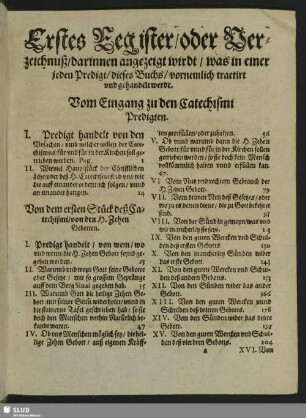 Erstes Register/oder Ver-
zeichnuß/darinnen angezeigt wirdt/was in einer
jeden Predigt/dieses Buchs/vornemlich tractirt
und gehandelt werde.
Vom Eingang zu den Catechismi
Predigten.
I. Predigt handelt von den
Ursachen/umb welcher willen der Cate-
chismus für und für in der Kirchen soll ge-
trieben werden. Pag. 1
II. Wieviel Hauptstück der Christlichen
und wie
die auff einander ordentlich folgen/und
an einander hangen.
Von dem ersten Stück deß Ca-
techismi/von den H. Zehen
Geboten.
I. Predigt handelt/von wem/wo
und wenn die H. Zehen Gebot seynd ge-
geben worden. 23
II. Warumb und Gott seine Gebote
oder Gesetze/mit so grossem Gepränge
auff dem Berg Sinai gegeben hab. 35
III. Warumb Gott die heilige Zehen Ge-
bot/mit seiner Stim widerholet/und in
die steinerne Tafel geschrieben hab/so sie
doch den Menschen vorhin Natürlich be-
kandt waren. 47
IV. Ob uns Menschen möglich sey/die hei-
lige Zehen Gebot/auß eigenen Kräff-
ten zuerfüllen/oder zuhalten. 56
V. Ob und warumb dann die H. Zehen
Gebott/für und für in der Kirchen sollen
getrieben werden/so sie doch kein Mensch
vollkömmlich halten und erfüllen kan.
67
VI. Vom Nutz und rechtem Gebrauch der
H. Zehen Gebott. 79
VII. Vom deß Gesetzes/oder
wo zu es denen diene/die zu Gott bekehret
sind.
VIII. Von der Sünd in gemein/was und
wie mancherley sie seye.
IX. Von den guten Wercken und Schul-
den deß ersten Gebots.
X. Von den mancherley Sünden wider
das erste Gebott. 143
XI. Von den guten Wercken und Schul-
den deß andern Gebots.
XII. Von den Sünden wider das ander
Gebott. 166
XIII. Von den guten Wercken und
Schulden deß dritten Gebots. 178
XIV. Von den Sünden wider das dritte
Gebott. 191
XV. Von den guten Wercken und Schul-
den deß vierdten Gebots. 204
a XVI. Von
SLUB